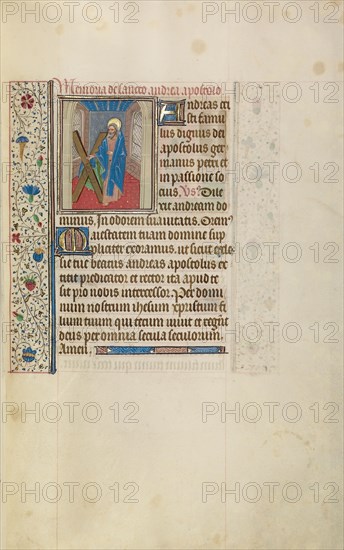 Memoria de sancto andrea apostolo
Andreas cri
sti famu
lus dignus dei
apostolus ger
manus petri et
in passione so
cius. Vs. Dile
xit andream do
minus. In odorem suavitatis. Oram
Maiestatem tuam domine sup
pliciter exoramus. ut sicut eccle
sie tue beatus andreas apostolus ex
titit predicator et rector ita apud te
sit pro nobis intercessor. Per domi
num nostrum ihesum xpistum fi
lium tuum qui tecum vivit et regnat
deus per omnia secula seculorum.
Amen.
PHOTO 12 PHOTO 12
PHOTO 12 PHOTO 12
PHOTO 12 PHOTO 12
PHOTO 12 PHOTO 12
PHOTO 12 PHOTO 12
PHOTO 12 PHOTO 12